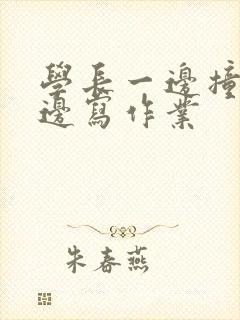 學長一邊撞
邊寫作業
朱春燕